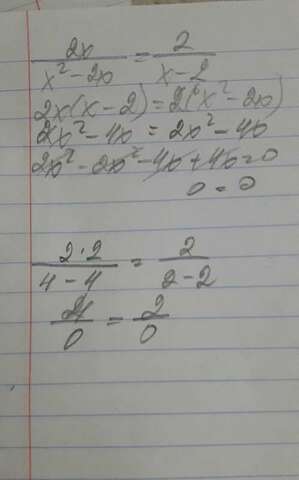 2x/(x²-2x) = 2/(x-2)
2x(x-2)=2(x²-2x)
2x²-4x = 2x²-4x
2x²-2x²-4x+4x=0
0 = 0
2·2/(4-4) = 2/(2-2)
4/0 = 2/0